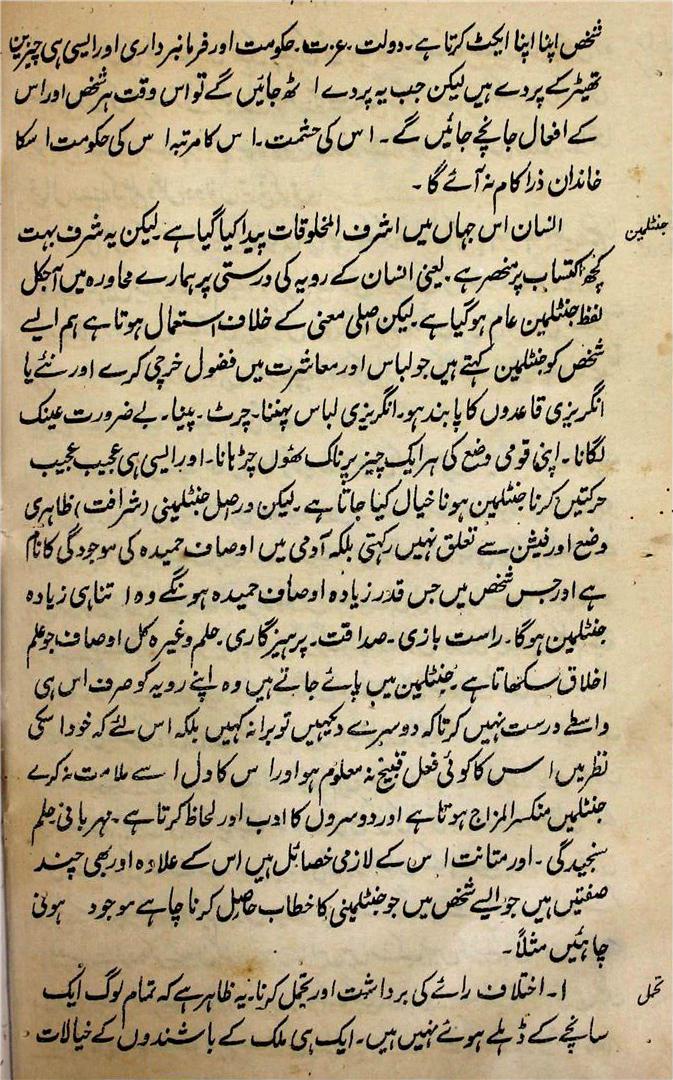 شخص اپنا اپنا ایکٹ کرتا ہے۔ دولت ۔ عزت۔ حکومت اور فرمانبرداری اور ایسی ہی چیزیں
تھیٹر کے پردے ہیں لیکن جب یہ پردے اٹھ جائیں گے تو اس وقت ہر شخص اور اس
کے افعال جانچے جائیں گے۔ اس کی حشمت۔ اس کا مرتبہ اس کی حکومت اسکا
خاندان ذرا کام نہ آئے گا۔
جنٹلمین
انسان اس جہاں میں اشرف المخلوقات پیدا کیا گیا ہے۔ لیکن یہ شرف بہت
کچھ اکتساب پر منحصر ہے۔ یعنی انسان کے رویہ کی درستی پر ہمارے محاورہ میں آجکل
لفظ جنٹلمین عام ہو گیا ہے۔ لیکن اصلی معنی کے خلاف استعمال ہوتا ہے ہم ایسے
شخص کو جنٹلمین کہتے ہیں جو لباس اور معاشرت میں فضول خرچی کرے اور نئے یا
انگریزی قاعدوں کا پابند ہو۔ انگریزی لباس پہننا۔ چرٹ ۔ پینا۔ بے ضرورت عینک
لگانا ۔ اپنی قومی وضع کی ہر ایک چیز پر ناک بھوں چڑہانا۔ اور ایسی ہی عجیب عجیب
حرکتیں کرنا جنٹلمین ہونا خیال کیا جاتا ہے ۔ لیکن دراصل جنٹلمینی (شرافت) ظاہری
وضع اور فیشن سے تعلق نہیں رکہتی بلکہ آدمی میں اوصاف حمیدہ کی موجودگی کا نام
ہے اور جس شخص میں جس قدر زیادہ اوصاف حمیدہ ہونگے وہ اتنا ہی زیادہ
جنٹلمین ہوگا۔ راست بازی ۔ صداقت۔ پرہیزگاری۔ حلم وغیرہ کل اوصاف جو علم
اخلاق سکھاتا ہے۔ جنٹلمین میں پائے جاتے ہیں وہ اپنے رویہ کو صرف اس ہی
واسطے درست نہیں کرتا کہ دوسرے دیکہیں تو برا نہ کہیں بلکہ اس لئے کہ خود اسکی
نظر میں اس کا کوئی فعل قبیح نہ معلوم ہو اور اس کا دل اسے ملامت نہ کرے
جنٹلمین منکسر المزاج ہوتا ہے اور دوسروں کا ادب اور لحاظ کرتا ہے۔ مہربانی۔ حلم
سنجیدگی ۔ اور متانت اس کے لازمی خصائل ہیں اس کے علاوہ اور بھی چند
صفتیں ہیں جو ایسے شخص میں جو جنٹلمینی کا خطاب حاصل کرنا چاہے موجود ہونی
چاہئیں مثلاً۔
تحمل
۱۔ اختلاف رائے کی برداشت اور تحمل کرنا۔ یہ ظاہر ہے کہ تمام لوگ ایک
سانچے کے ڈہلے ہوئے نہیں ہیں۔ ایک ہی ملک کے باشندوں کے خیالات